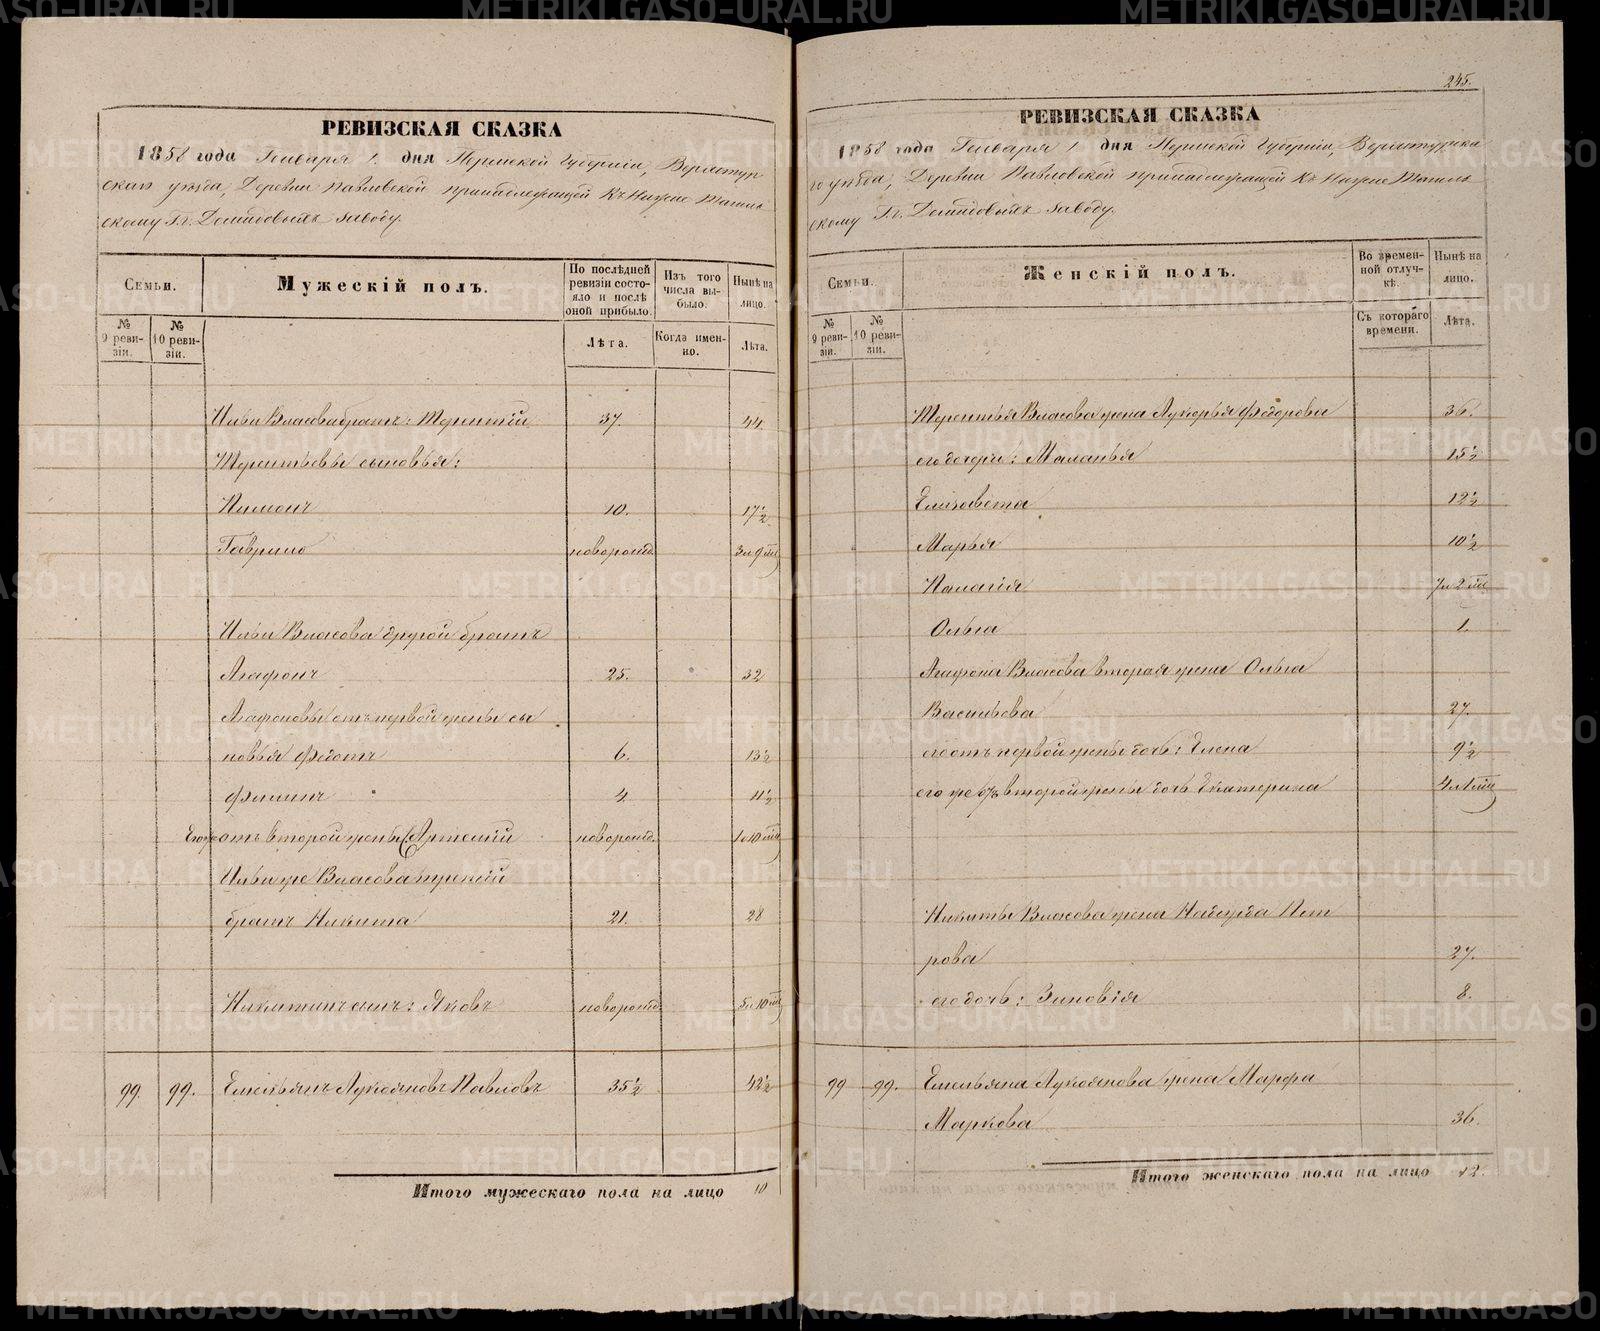 РЕВИЗСКАЯ СКАЗКА
1858 года Генваря 1 дня Пермской Губерніи, Верхотур
скаго уѣзда, Деревни Павловской принадлежащей Къ Нижне Тагиль
скому Гг. Демидовыхъ заводу.
Семьи.
Мужескій полъ.
По послѣдней
ревизіи состо-
яло и послѣ
оной прибыло.
Изъ того
числа вы-
было.
Нынѣ на
лицо.
№
9 реви-
зіи.
№
10 реви-
зіи.
Лѣта.
Когда имен-
но.
Лѣта.
Ильи Власова братъ: Терентій 37. 44.
Терентьевы сыновья:
Пименъ 10. 17½
Гаврило новорожд. 3 л 9 м
Ильи Власова другой братъ
Агафонъ 25. 32
Агафоновы отъ первой жены сы
новья Федотъ 6. 13½
Филипъ 4 11½
Его же отъ второй жены Артемій новорожд. 1 л 10 м
Ильи же Власова третій
братъ Никита 21. 28
Никитинъ сынъ: Яковъ новорожд. 5 л 10 м
99. 99. Емельянъ Лукояновъ Павловъ 35½ 42½
Итого мужескаго пола на лицо 10
245.
РЕВИЗСКАЯ СКАЗКА
1858 года Генваря 1 дня Пермской Губерніи Верхотурска
го уѣзда, Деревни Павловской принадлежащей Къ Нижне Тагиль
скому Гг. Демидовыхъ заводу.
Семьи.
Женскій полъ.
Во времен-
ной отлуч-
кѣ.
Нынѣ на
лицо.
№
9 реви-
зіи.
№
10 реви-
зіи.
Съ котораго
времени.
Лѣта.
Терентья Власова жена Лукерья Федорова 36.
его дочери: Маланья 15½
Елизавета 12½
Марья 10½
Палагія 7 л 2 м
Ольга 1.
Агафона Власова вторая жена Ольга
Васильева 27.
его отъ первой жены дочь: Елена 9½
его же отъ второй жены дочь Екатерина 4 л 1 м
Никиты Власова жена Пет
рова 27.
его дочь: Зиновія 8.
99 99. Емельяна Лукоянова жена Марфа
Маркова 36.
Итого женскаго пола на лицо 12.
METRIKI.GASO-URAL.RU